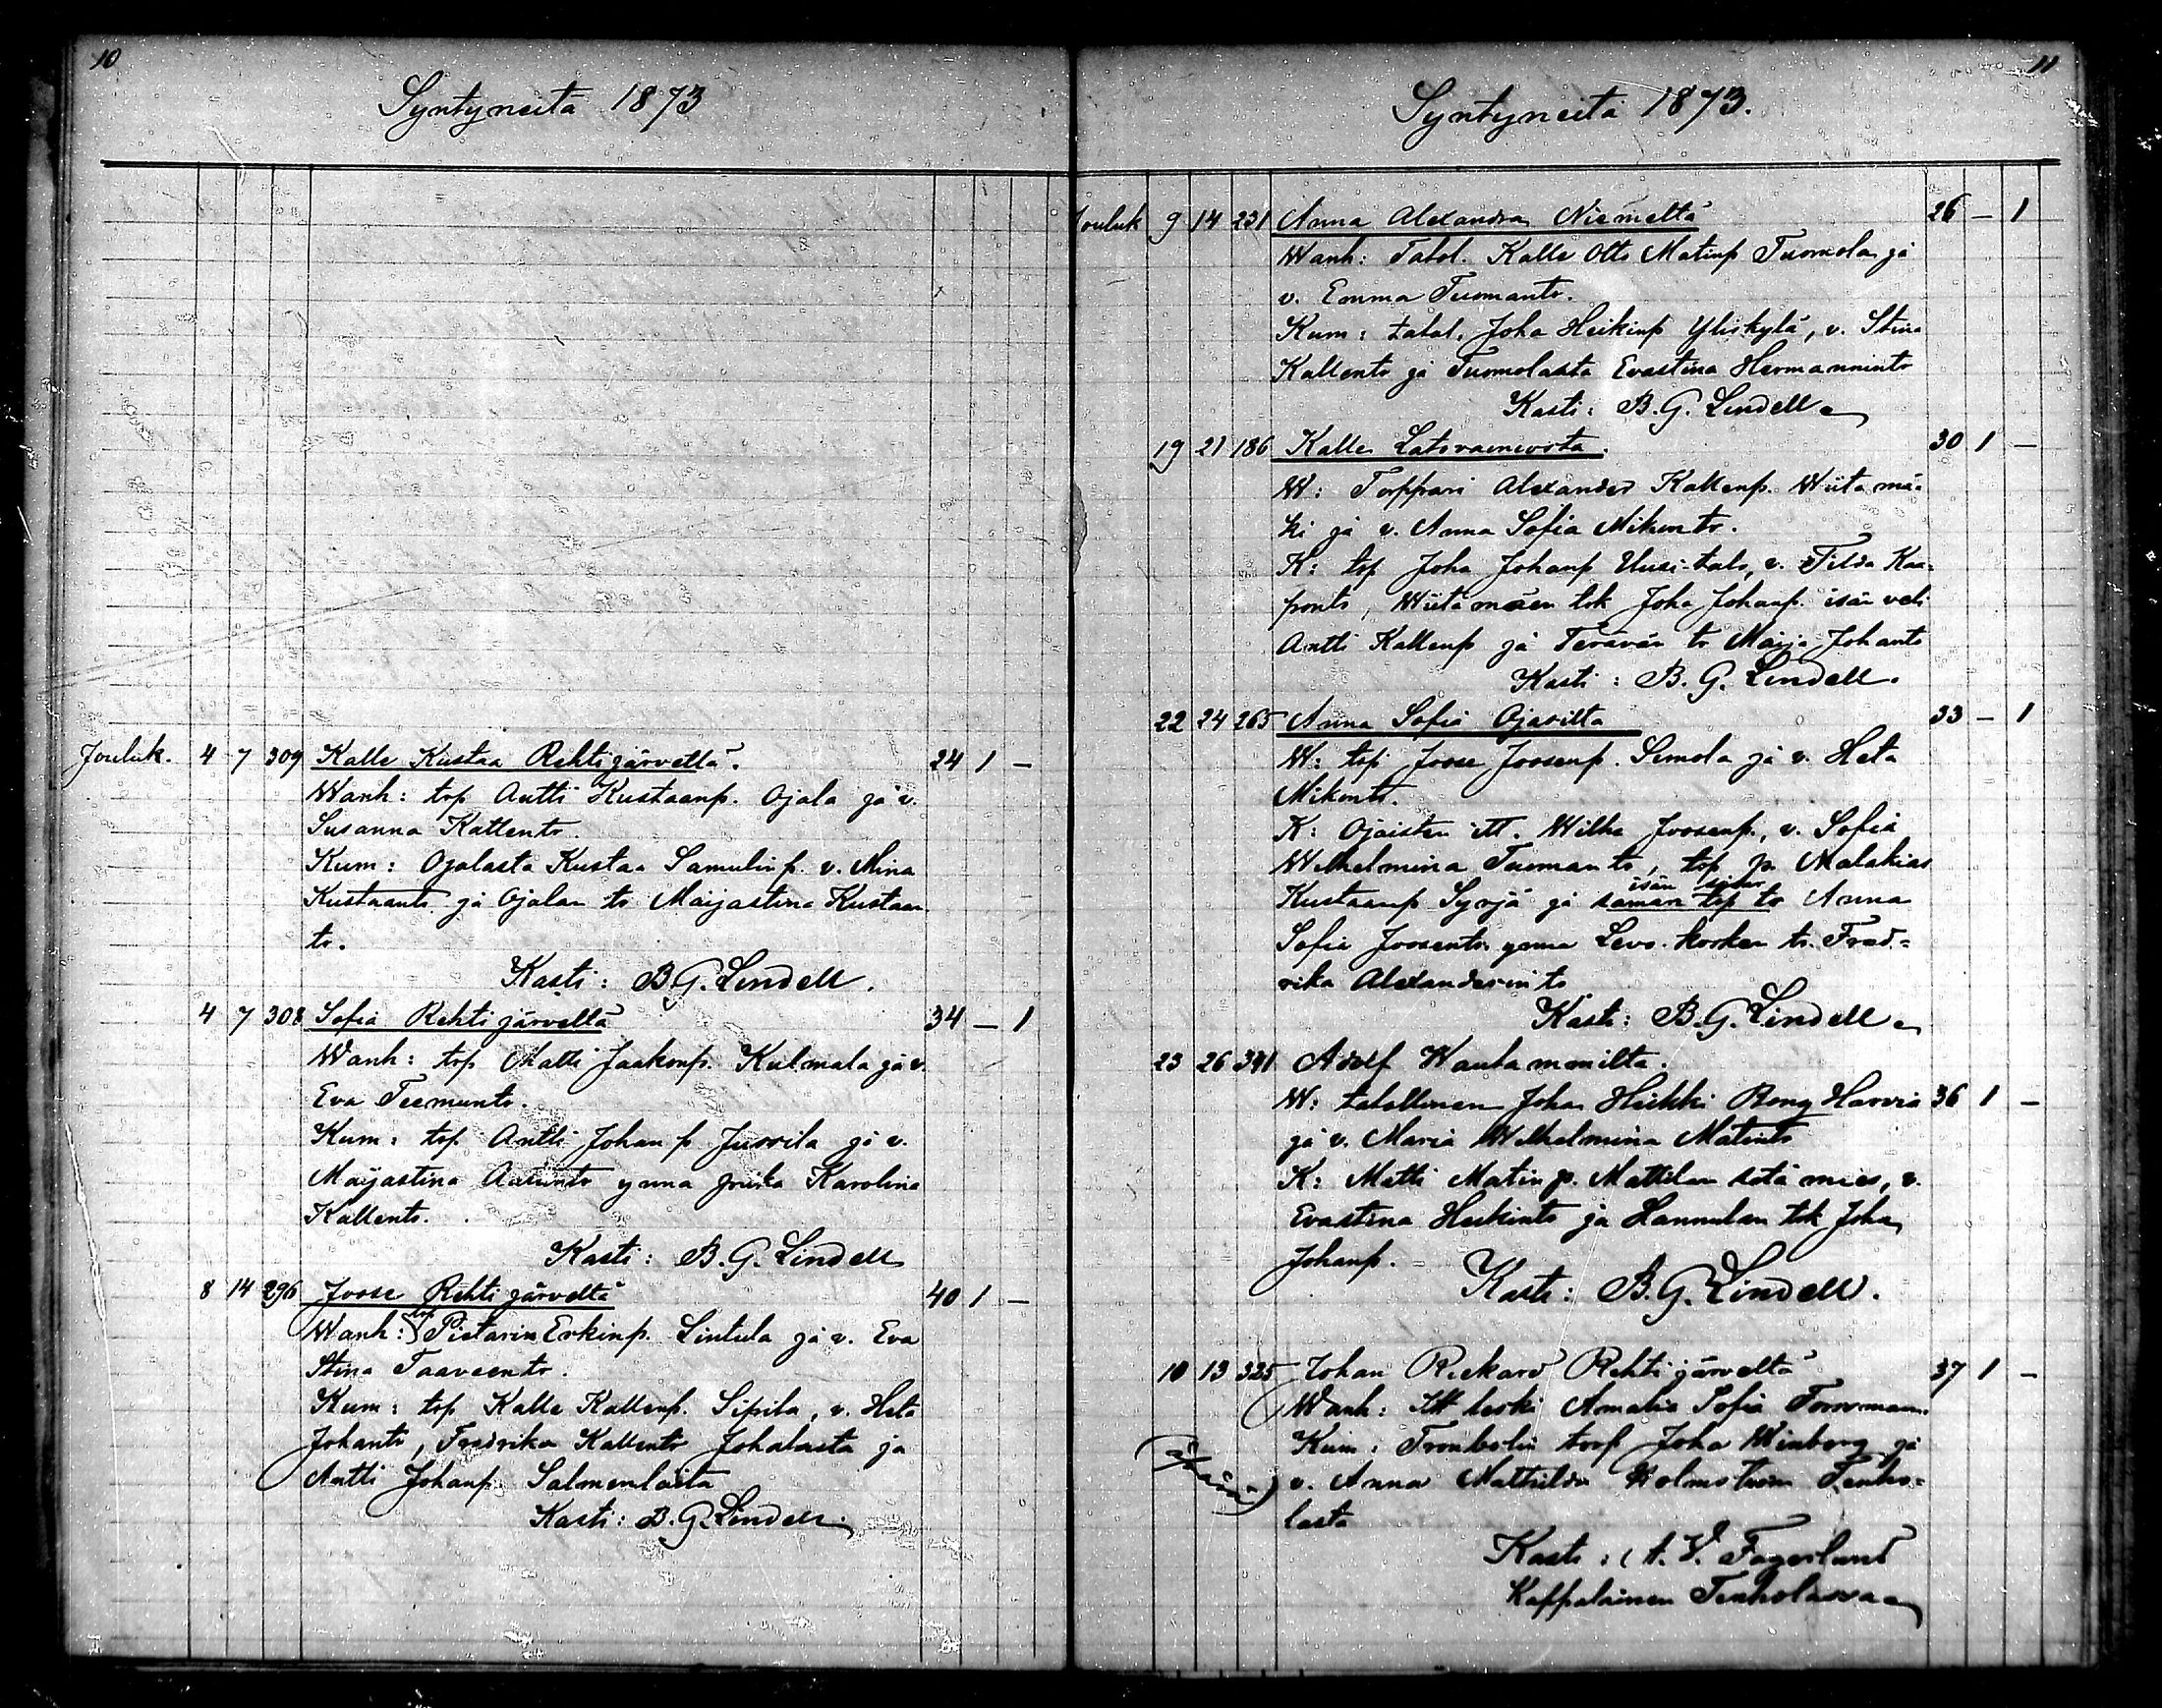 10
Syntyneitä 1873
Jouluk. 4 7 309 Kalle Kustaa Rehtijärveltä. 24 1 —
Wanh: top Antti Kustaanp. Ojala ja v.
Susanna Kallentr.
Kum: Ojalasta Kustaa Samulinp. v. Mina
Kustaantr. ja Ojalan tr Maijastina Kustaan
tr.
Kasti: B.G. Lindell.
4 7 308 Sofia Rehtijärveltä 34 — 1
Wanh: top Matti Jaakonp. Kulmala ja v.
Eva Teemuntr.
Kum: top Antti Johanp Jussila ja v.
Maijastina Antintr ynnä Karolina
Kallentr.
Kasti: B.G. Lindell
8 14 296 Joose Rehtijärveltä 40 1 —
Wanh: top Pietarin Erkinp. Lintula ja v. Eva
Stina Taaveentr.
Kum: top Kalle Kallenp. Sipilä, v. Heta
Johantr, Fredrika Kallentr Joholasta ja
Antti Johanp. Salmenlaita
Kasti: B.G. Lindell.
11
Syntyneitä 1873.
Jouluk 9 14 231 Anna Alexandra Niemeltä 26 — 1
Wanh: Talol. Kalle Otto Matinp Tuomola ja
v. Emma Tuomantr.
Kum: talol. Joha Heikinp Yliskylä, v. Stina
Kallentr ja Tuomolasta Evastina Hermannintr
Kasti: B.G. Lindell
19 21 186 Kalle 30 1 —
W: Torppari Alexander Kallenp. Wiitamä-
ki ja v. Anna Sofia Mikontr.
K: top Joha Johanp Uusi-talo, v. Tilda Kaa-
pontr, Wiitamäen tok Joha Johanp. isän veli
Antti Kallenp ja Terävän tr Maija Johantr
Kasti: B.G. Lindell.
22 24 265 Anna Sofia Ojasilta 33 — 1
W: top Joose Joosenp. Simola ja v. Heta
Mikontr.
K: Ojaisten itl. Wilhe Joosenp., v. Sofia
Wilhelmina Tuomantr, top p. Malakias
isän sisar
Kustaanp Syrjä ja saman top tr Anna
Sofia Joosentr ynnä kosken tr. Fred-
rika Alexanderintr
Kasti: B.G. Lindell
23 26 341 Adolf
W: talollinen Joha Heikki Bong Harvia 36 1 —
ja v. Maria Wilhelmina Matintr
K: Matti Matinp. Mattilan sotamies, v.
Evastina Heikintr ja Hannulan tok Joha
Johanp.
Kasti: B.G. Lindell.
10 13 325 Johan Rickard Rehtijärveltä 37 1 —
Wanh: Itl leski Amalia Sofia
Kum: torp Joha Winberg ja
v. Anna Mathilda Holmström Tenho-
lasta
Kasti: A. V. Fagerlund
Kappalainen Tenholassa